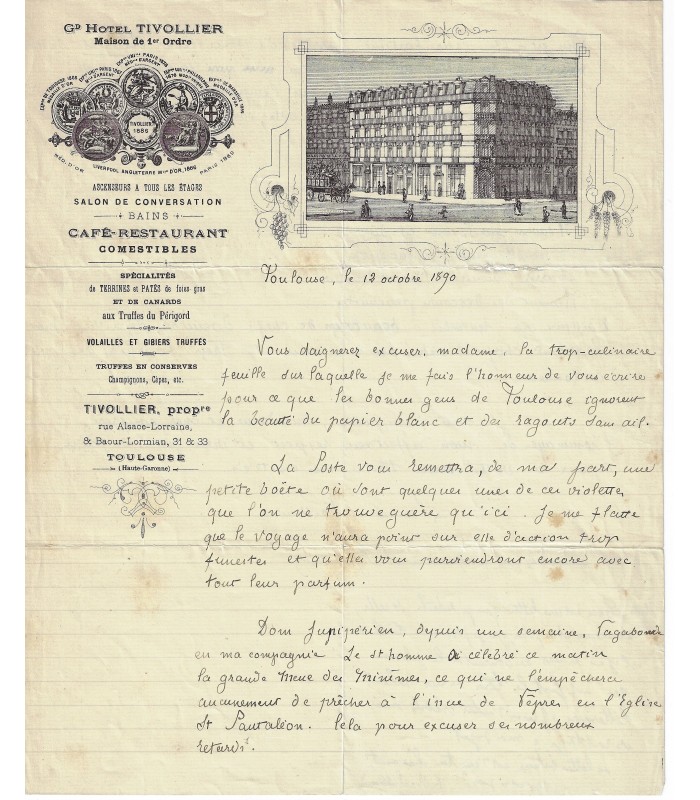 Gᴰ HOTEL TIVOLLIER
Maison de 1er Ordre
TIVOLLIER
1886
LIVERPOOL ANGLETERRE Mlle D'OR, 1886
MÉD. D'OR
PARIS 1889
ASCENSEURS A TOUS LES ÉTAGES
SALON DE CONVERSATION
BAINS
CAFÉ-RESTAURANT
COMESTIBLES
SPÉCIALITÉS
de TERRINES et PATÉS de foies gras
ET DE CANARDS
aux Truffes du Périgord
VOLAILLES ET GIBIERS TRUFFÉS
TRUFFES EN CONSERVES
Champignons, Cèpes, etc.
TIVOLLIER, propre
rue Alsace-Lorraine,
& Baour-Lormian, 31 & 33
TOULOUSE
(Haute-Garonne)
Toulouse, le 12 octobre 1890
Vous daignerez excuser, madame, la trop-culinaire
feuille sur laquelle je me fais l'honneur de vous écrire
pour ce que les bonnes gens de Toulouse ignorent
la beauté du papier blanc et des ragouts sans ail.
La Poste vous remettra, de ma part, une
petite boëte où sont quelques unes de ces violettes
que l'on ne trouve guère qu'ici. Je me flatte
que le voyage n'aura point sur elle d'action trop
funestes et qu'elles vous parviendront encore avec
tout leur parfum.
Dom Junipérien, depuis une semaine, vagabonde
en ma compagnie. Le st homme a célébré ce matin
la grande messe des Minimes, ce qui ne l'empêchera
aucunement de prêcher à l'issue de Vêpres en l'Eglise
St Pantaléon. Cela pour excuser ses nombreux
retards.